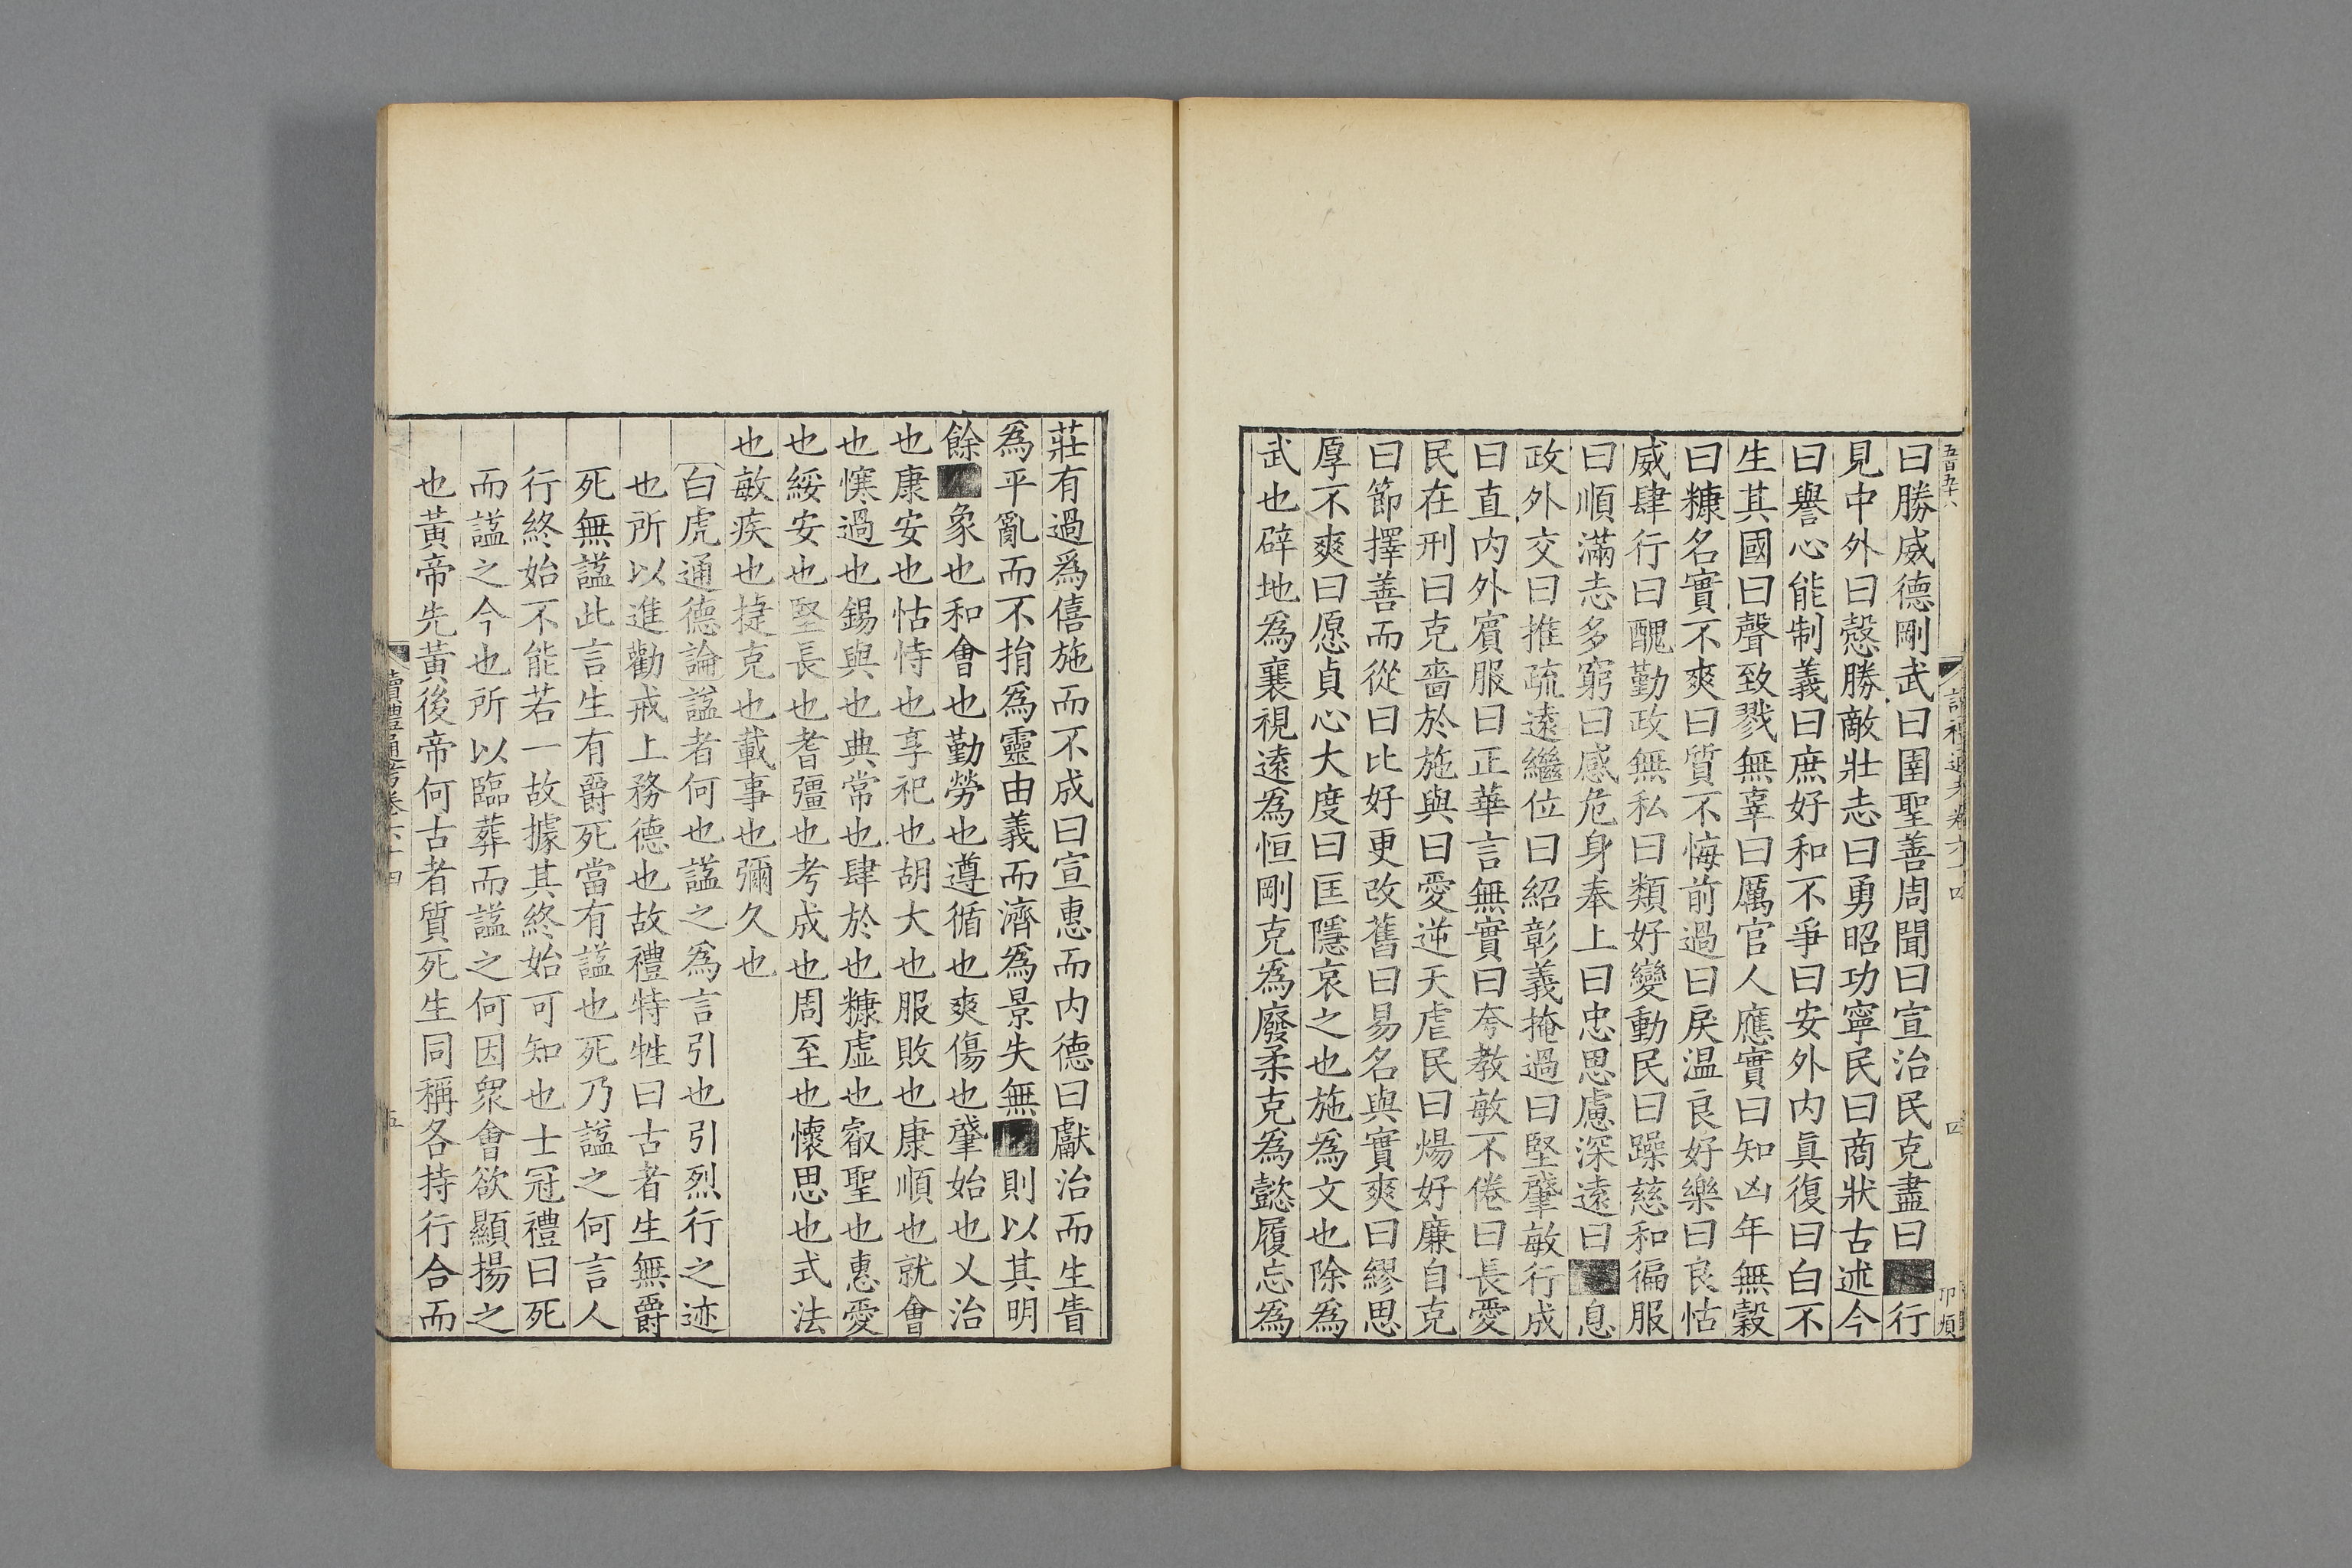 五百五十八
讀禮通考卷六十四
四
曰勝威德剛武曰圉聖善周聞曰宣治民克盡曰■行
見中外曰慤勝敵壯志曰勇昭功寧民曰商狀古述今
曰譽心能制義曰庶好和不爭曰安外内眞復曰白不
生其國曰聲致戮無辜曰厲官人應實曰知凶年無穀
曰糠名實不爽曰質不悔前過曰戾温良好樂曰良怙
威肆行曰醜勤政無私曰類好變動民曰躁慈和徧服
曰順滿志多窮曰感危身奉上曰忠思慮深遠曰■息
政外交曰推疏遠繼位曰紹彰義掩過曰堅肇敏行成
曰直内外賓服曰正華言無實曰夸教敏不倦曰長愛
民在刑曰克嗇於施與曰愛逆天虐民曰煬好廉自克
曰節擇善而從曰比好更改舊曰易名與實爽曰繆思
厚不爽曰愿貞心大度曰匡隱哀之也施爲文也除爲
武也辟地爲襄視遠爲恒剛克爲廢柔克爲懿履忘爲
莊有過爲僖施而不成曰宣惠而内德曰獻治而生眚
爲平亂而不㨈爲靈由義而濟爲景失無■則以其明
餘■象也和會也勤勞也遵循也爽傷也肇始也乂治
也康安也怙恃也享祀也胡大也服敗也康順也就會
也㥶過也錫與也典常也肆於也糠虛也叡聖也惠愛
也綏安也堅長也耆彊也考成也周至也懷思也式法
也敏疾也捷克也載事也彌久也
白虎通德論謚者何也謚之爲言引也引烈行之迹
也所以進勸戒上務德也故禮特牲曰古者生無爵
死無謚此言生有爵死當有謚也死乃謚之何言人
行終始不能若一故據其終始可知也士冠禮曰死
而謚之今也所以臨葬而謚之何因衆會欲顯揚之
也黃帝先黃後帝何古者質死生同稱各持行合而
讀禮通考卷六十四
五